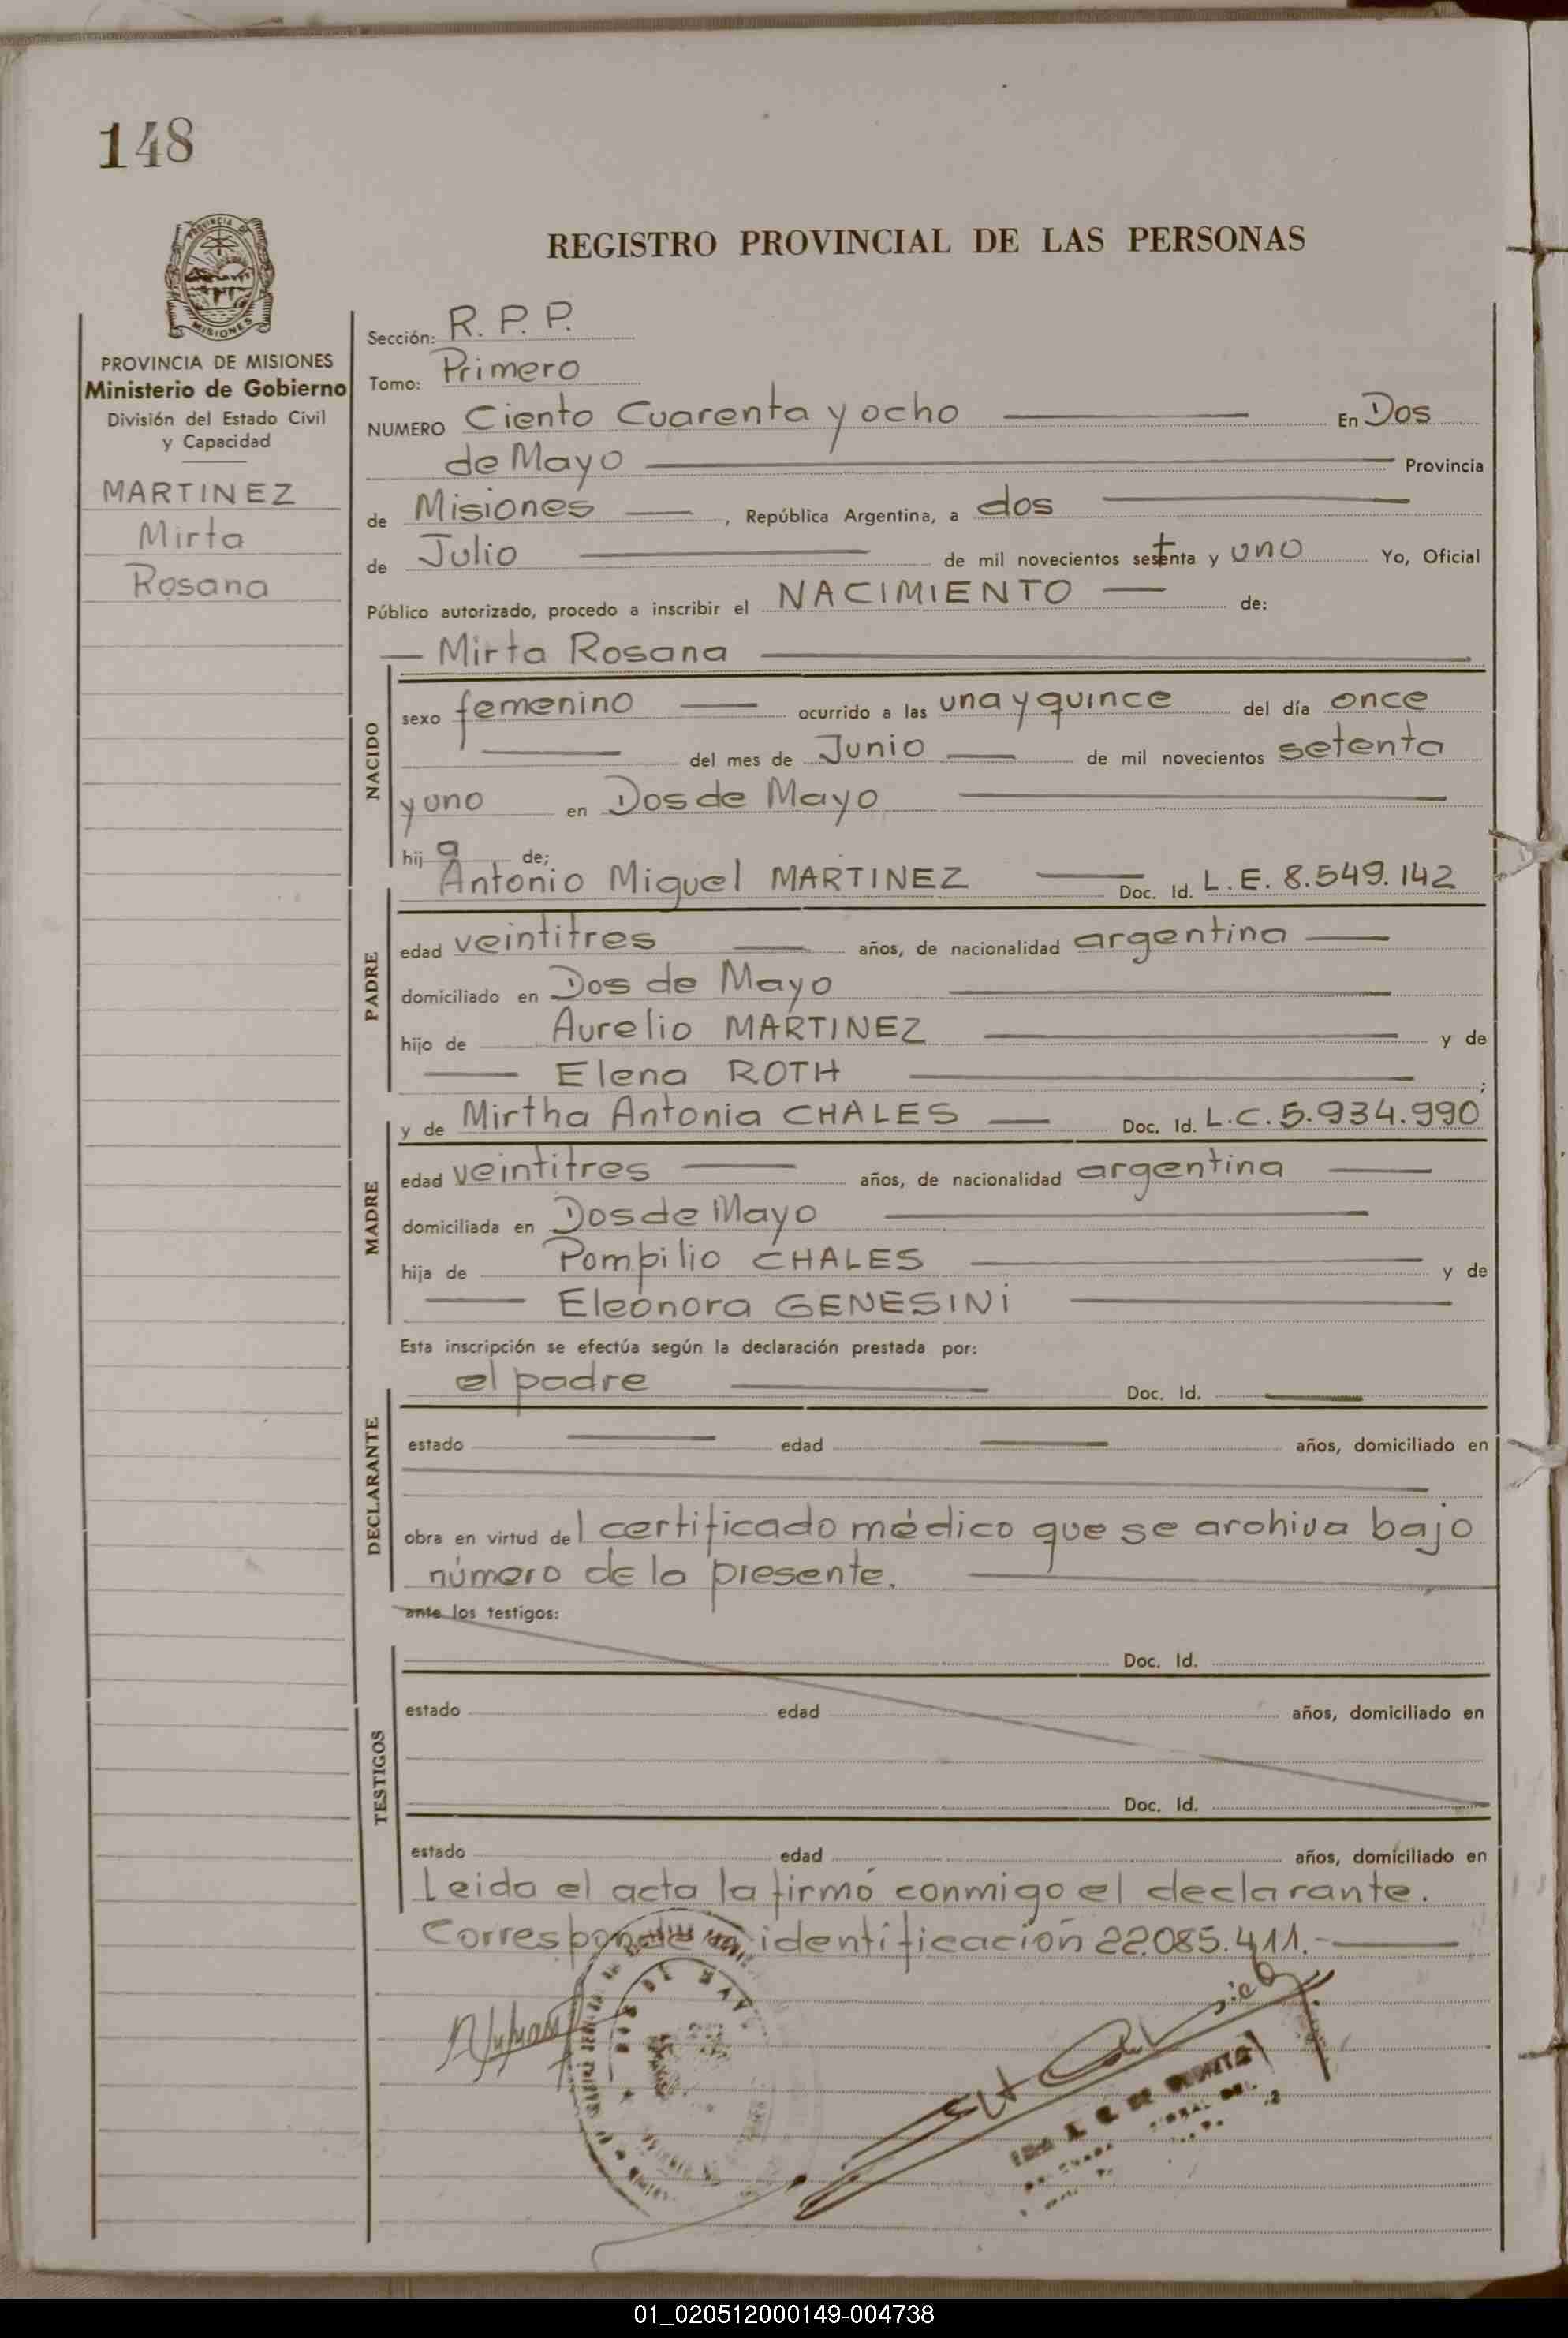 148
REGISTRO PROVINCIAL DE LAS PERSONAS
PROVINCIA DE
MISIONES
PROVINCIA DE MISIONES
Ministerio de Gobierno
División del Estado Civil
y Capacidad
MARTINEZ
Mirta
Rosana
Sección: R. P. P.
Tomo: Primero
NUMERO Ciento Cuarenta y ocho En Dos
de Mayo Provincia
de Misiones, República Argentina, a dos
de Julio de mil novecientos setenta y uno Yo, Oficial
Público autorizado, procedo a inscribir el NACIMIENTO de:
Mirta Rosana
NACIDO
sexo femenino ocurrido a las una y quince del día once
del mes de Junio de mil novecientos setenta
y uno en Dos de Mayo
hija de;
Antonio Miguel MARTINEZ Doc. Id. L.E. 8.549.142
PADRE
edad veintitres años, de nacionalidad argentina
domiciliado en Dos de Mayo
hijo de Aurelio MARTINEZ y de
Elena ROTH ;
y de Mirtha Antonia CHALES Doc. Id. L.C. 5.934.990
MADRE
edad veintitres años, de nacionalidad argentina
domiciliada en Dos de Mayo
hija de Pompilio CHALES y de
Eleonora GENESINI
Esta inscripción se efectúa según la declaración prestada por:
el padre Doc. Id.
DECLARANTE
estado edad años, domiciliado en
obra en virtud del certificado médico que se archiva bajo
número de la presente.
ante los testigos:
Doc. Id.
TESTIGOS
estado edad años, domiciliado en
Doc. Id.
estado edad años, domiciliado en
Leida el acta la firmó conmigo el declarante.
Corresponde identificación 22.085.411.-
01_020512000149-004738